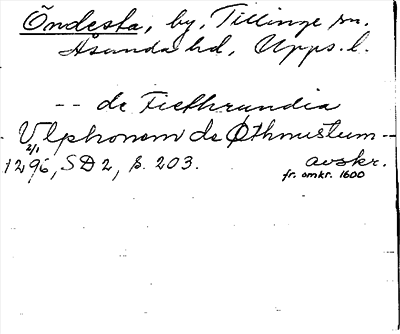 Öndesta, by, Tillinge sn.
Åsunda hd, Upps. l.
-- de Fiethrundia
Vlphonem de Øthmustum --
2/1
1296, SD 2, s. 203. avskr.
fr. omkr. 1600